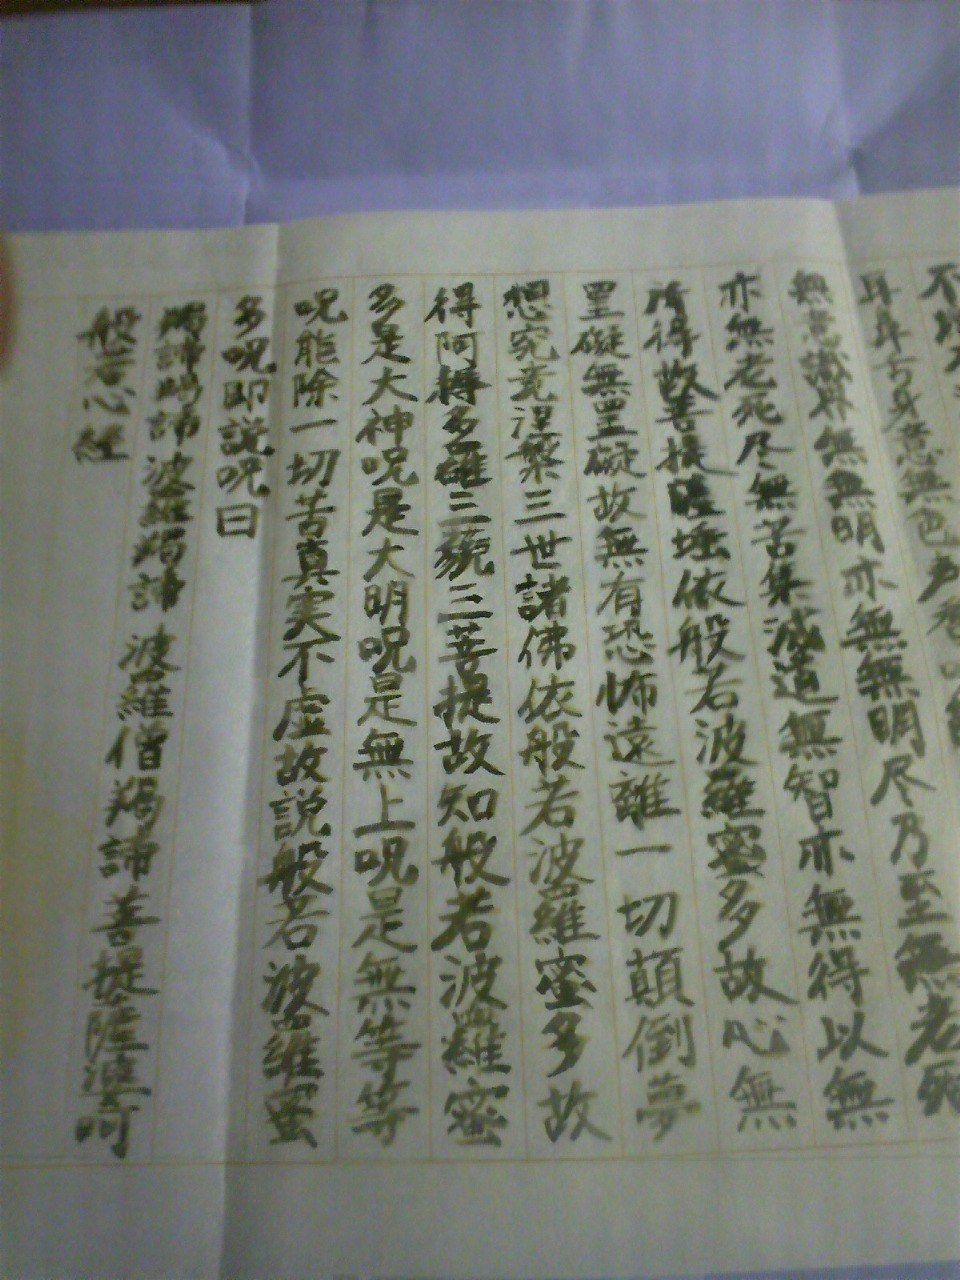 不増不
耳鼻舌身意無色声香味
無意識界無無明亦無無明尽乃至無老死
亦無老死尽無苦集滅道無智亦無得以無
所得故菩提薩埵依般若波羅蜜多故心無
罣礙無罣礙故無有恐怖遠離一切顛倒夢
想究竟涅槃三世諸佛依般若波羅蜜多故
得阿耨多羅三藐三菩提故知般若波羅蜜
多是大神呪是大明呪是無上呪是無等等
呪能除一切苦真実不虚故説般若波羅蜜
多呪即説呪曰
羯諦羯諦 波羅羯諦 波羅僧羯諦菩提薩婆訶
般若心経